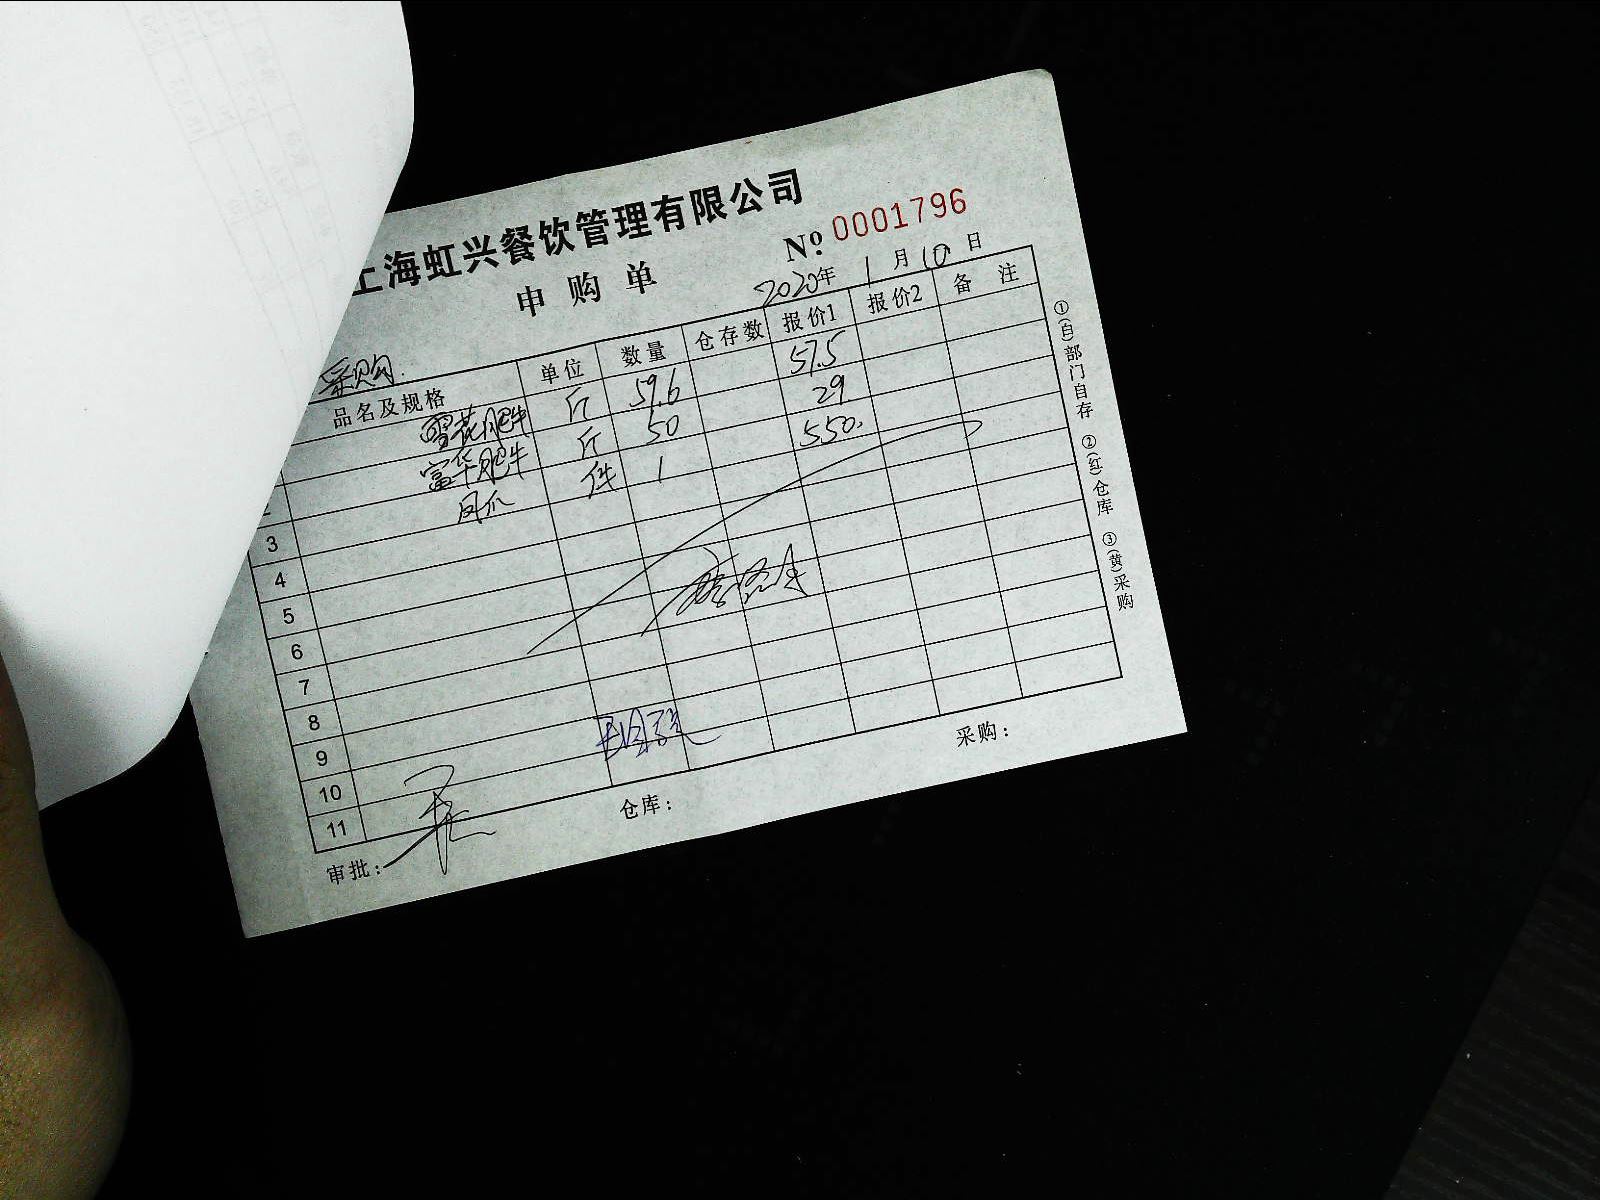 上海虹兴餐饮管理有限公司
申购单
№ 0001796
2020年 1月 10日
采购
品名及规格 单位 数量 仓存数 报价1 报价2 备注
雪花肥牛 斤 59.6 57.5
富华肥牛 斤 50 29
凤爪 件 1 550.
3
4
5
6
7
8
9
10
11
审批：
仓库：
采购：
①(白)部门自存 ②(红)仓库 ③(黄)采购